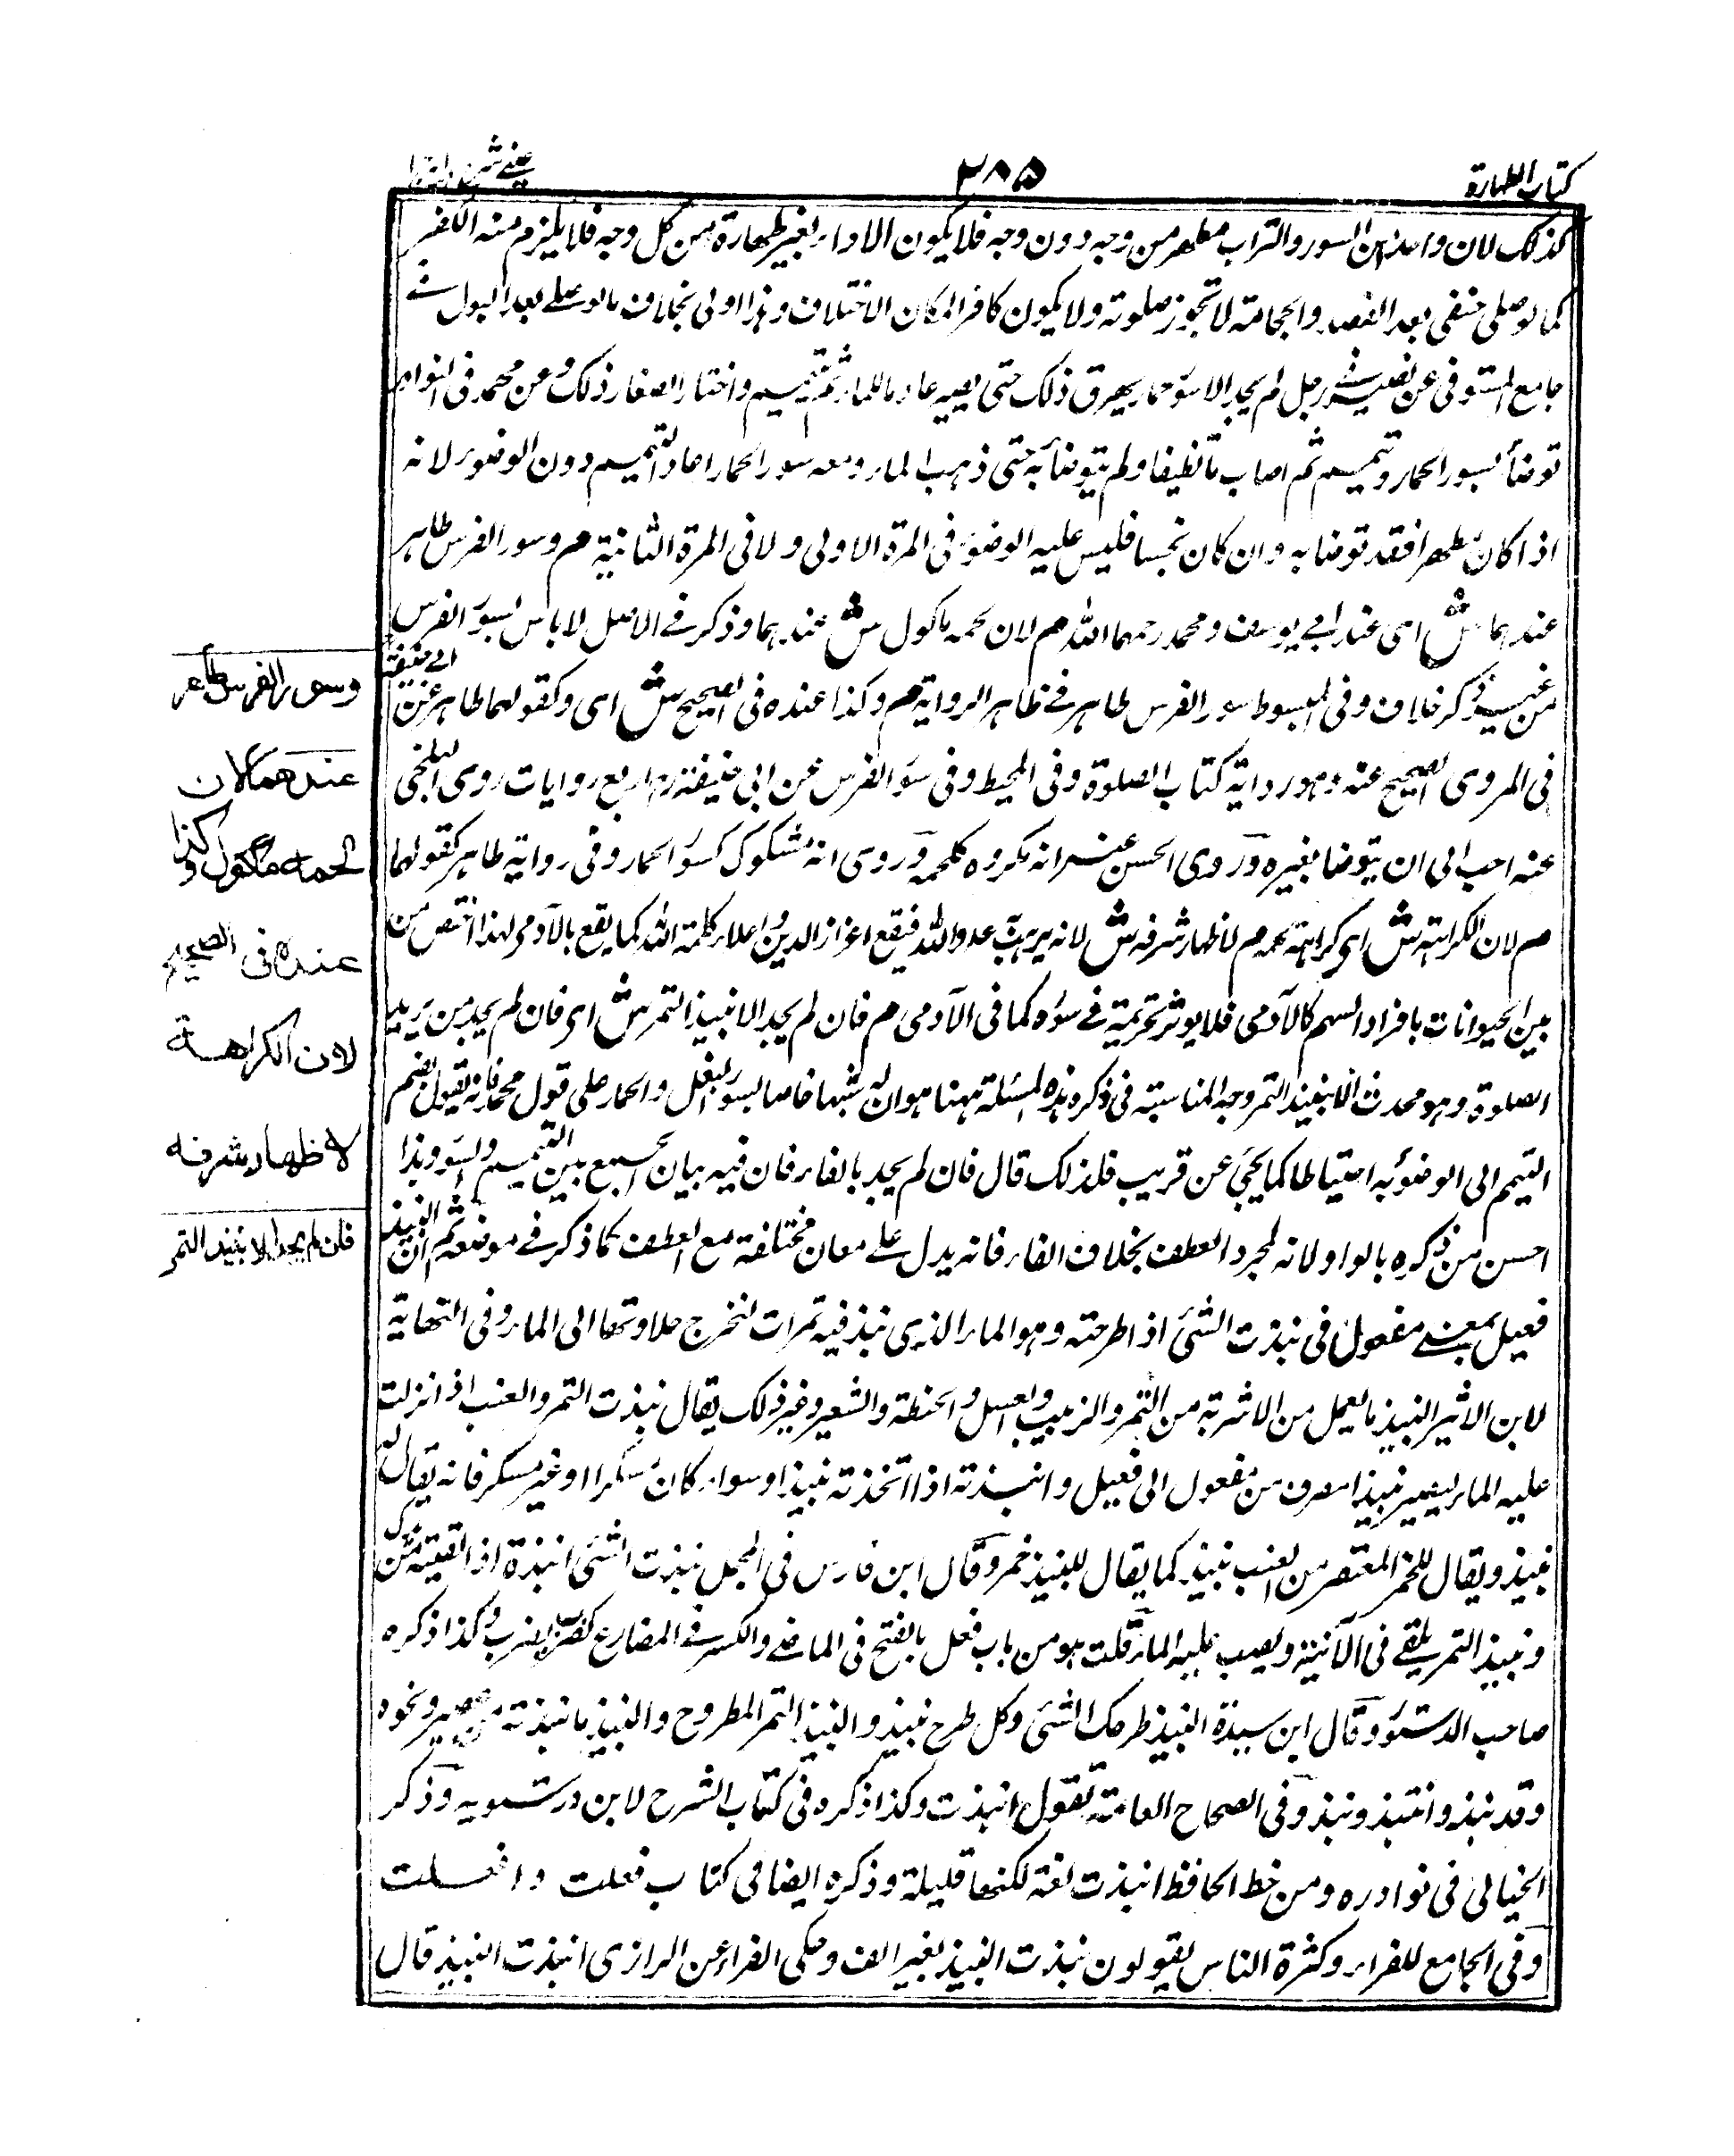 كتاب الطهارة
٢٨٥
عينى شرح هدايه
كذلك لان واحدا من السور والتراب مطهر من وجه دون وجه فلا يكون الاداء بغير طهارة من كل وجه فلا يلزم منه الكفر
كما لو صلى حنفى بعد الفصد والحجامة لا تجوز صلوته ولا يكون كافرا لمكان الاختلاف وهذا اولى بخلاف ما لو صلى بعد البول فى
جامع المستوفى عن نصير فى رجل لم يجد الا سؤر حمار يهريق ذلك حتى يصير عادما للماء ثم تيمم واختار الصفار ذلك وعن محمد فى النوادر
توضأ بسور الحمار وتيمم ثم اصاب ماء نظيفا ولم يتوضأ به حتى ذهب الماء ومعه سور الحمار اعاد التيمم دون الوضوء لانه
اذا كان مطهرا فقد توضا به وان كان نجسا فليس عليه الوضوء فى المرة الاولى ولا فى المرة الثانية م وسور الفرس طاهر
عندهما ش اى عند ابى يوسف ومحمد رحمهما الله م لان لحمه ماكول ش عندهما وذكر فى الاصل لا باس بسور الفرس
من غير ذكر خلاف وفى المبسوط سور الفرس طاهر فى ظاهر الرواية م وكذا عنده فى الصحيح ش اى وكقولهما طاهر عن ابى حنيفة
فى المروى الصحيح عنه وهو رواية كتاب الصلوة وفى المحيط وفى سؤر الفرس عن ابى حنيفة رح اربع روايات روى البلخى
عنه احب الى ان يتوضا بغيره وروى الحسن عنه انه مكروه كلحمه وروى انه مشكوك كسؤر الحمار وفى رواية طاهر كقولهما
م لان الكراهة ش اى كراهة لحمه م لاظهار شرفه ش لانه يرهب به عدو الله فيقع اعزاز الدين واعلاء كلمة الله كما يقع بالآدمى لهذا اختص من
بين الحيوانات بافراد السهم كالآدمى فلا يوثر تحريمه فى سؤره كما فى الآدمى م فان لم يجد الا نبيذ التمر ش اى فان لم يجد من يريد
الصلوة وهو محدث الا نبيذ التمر وجه المناسبة فى ذكره هذه المسئلة ههنا هو ان له شبها خاصا بسور البغل والحمار على قول محمد فانه يقول بضم
التيمم الى الوضوء به احتياطا كما يجئ عن قريب فلذلك قال فان لم يجد بالفاء فان فيه بيان الجمع بين التيمم والسؤر وهذا
احسن من ذكره بالواو لانه لمجرد العطف بخلاف الفاء فانه يدل على معان مختلفة مع العطف كما ذكر فى موضعه ثم ان النبيذ
فعيل بمعنى مفعول فى نبذت الشئ اذا طرحته وهو الماء الذى نبذ فيه تمرات لتخرج حلاوتها الى الماء وفى النهاية
لابن الاثير النبيذ ما يعمل من الاشربة من التمر والزبيب والعسل والحنطة والشعير وغير ذلك يقال نبذت التمر والعنب اذا نزلت
عليه الماء ليصير نبيذا صرف من مفعول الى فعيل وانتبذته اذا اتخذته نبيذا وسواء كان مسكرا او غير مسكر فانه يقال له
نبيذ ويقال للخمر المعتصر من العنب نبيذ كما يقال للنبيذ خمر وقال ابن فارس فى المجمل نبذت الشئ انبذه اذا القيته من يدك
ونبيذ التمر يلقى فى الآنية ويصب عليه الماء قلت هو من باب فعل بالفتح فى الماضى والكسر فى المضارع كضرب يضرب وكذا ذكره
صاحب الدستور وقال ابن سيدة النبيذ طرحك الشئ وكل طرح نبيذ والنبيذ التمر المطروح والنبيذ ما نبذته من عصير ونحوه
وقد نبذه وانتبذ ونبذ وفى الصحاح العامة تقول انبذت وكذا ذكره فى كتاب الشرح لابن درستويه وذكر
الخيالى فى نوادره ومن خط الحافظ انبذت لغة لكنها قليلة وذكره ايضا فى كتاب فعلت وافعلت
وفى الجامع للفراء وكثرة الناس يقولون نبذت النبيذ بغير الف وحكى الفراء عن الرازى انبذت النبيذ قال
وسور الفرس طاهر
عندهما لان
لحمه ماكول وكذا
عنده فى الصحيح
لان الكراهة
لاظهار شرفه
فان لم يجد الا نبيذ التمر